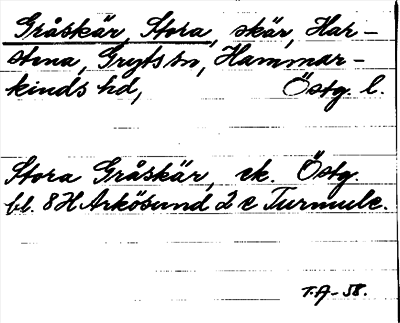 Gråskär, Stora, skär, Har-
stena, Gryts sn, Hammar-
kinds hd, Östg. l.
Stora Gråskär, ek. Östg.
bl. 8 H Arkösund 2 c Turmulc.
T.A-58.